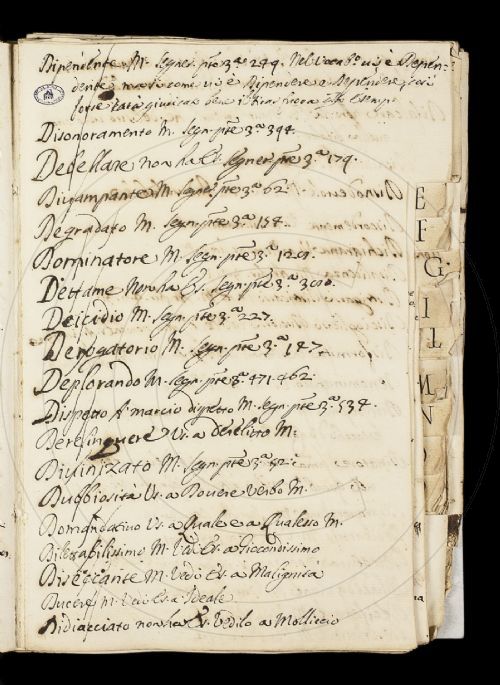 Dipendente M. Segner. pte 3.a 249. Nel Vocab.o vi è Depen-
dente ma sì come vi è Dipendere e Dependere, così
forse sarà
Disonoramento M. Segn. pte 3.a 394.
Debellare non ha Es. Segner. pte 3.a 179.
Divampante M. Segner. pte 3.a 62.
Degradato M. Segn. pte 3.a 154.
Dominatore M. Segn. pte 3.a
Dettame Non ha Es. Segn. pte 3.a 300.
Deicidio M. Segn. pte 3.a 227.
Derogatorio M. Segn. pte 3.a 147.
Deplorando M. Segn. pte 3.a 471. 462.
Dispetto A marcio dispetto M. Segn. pte 3.a 534.
Derelinquere Es. a derelitto M.
Divinizato M. Segn. pte 3.a 52.
Dubbiosità Es. a Dovere Verbo M.
Domandativo Es. a Quale e a Qualesso M.
Dilettabilissimo M. Vedi Es. a Giocondissimo
Diseccante M. Vedi Es. a Malignità
Ducere M. Vedi Es. a Ideale
Didiacciato non ha Es. Vedilo a Molliccio
E
F
G
I
L
M
N